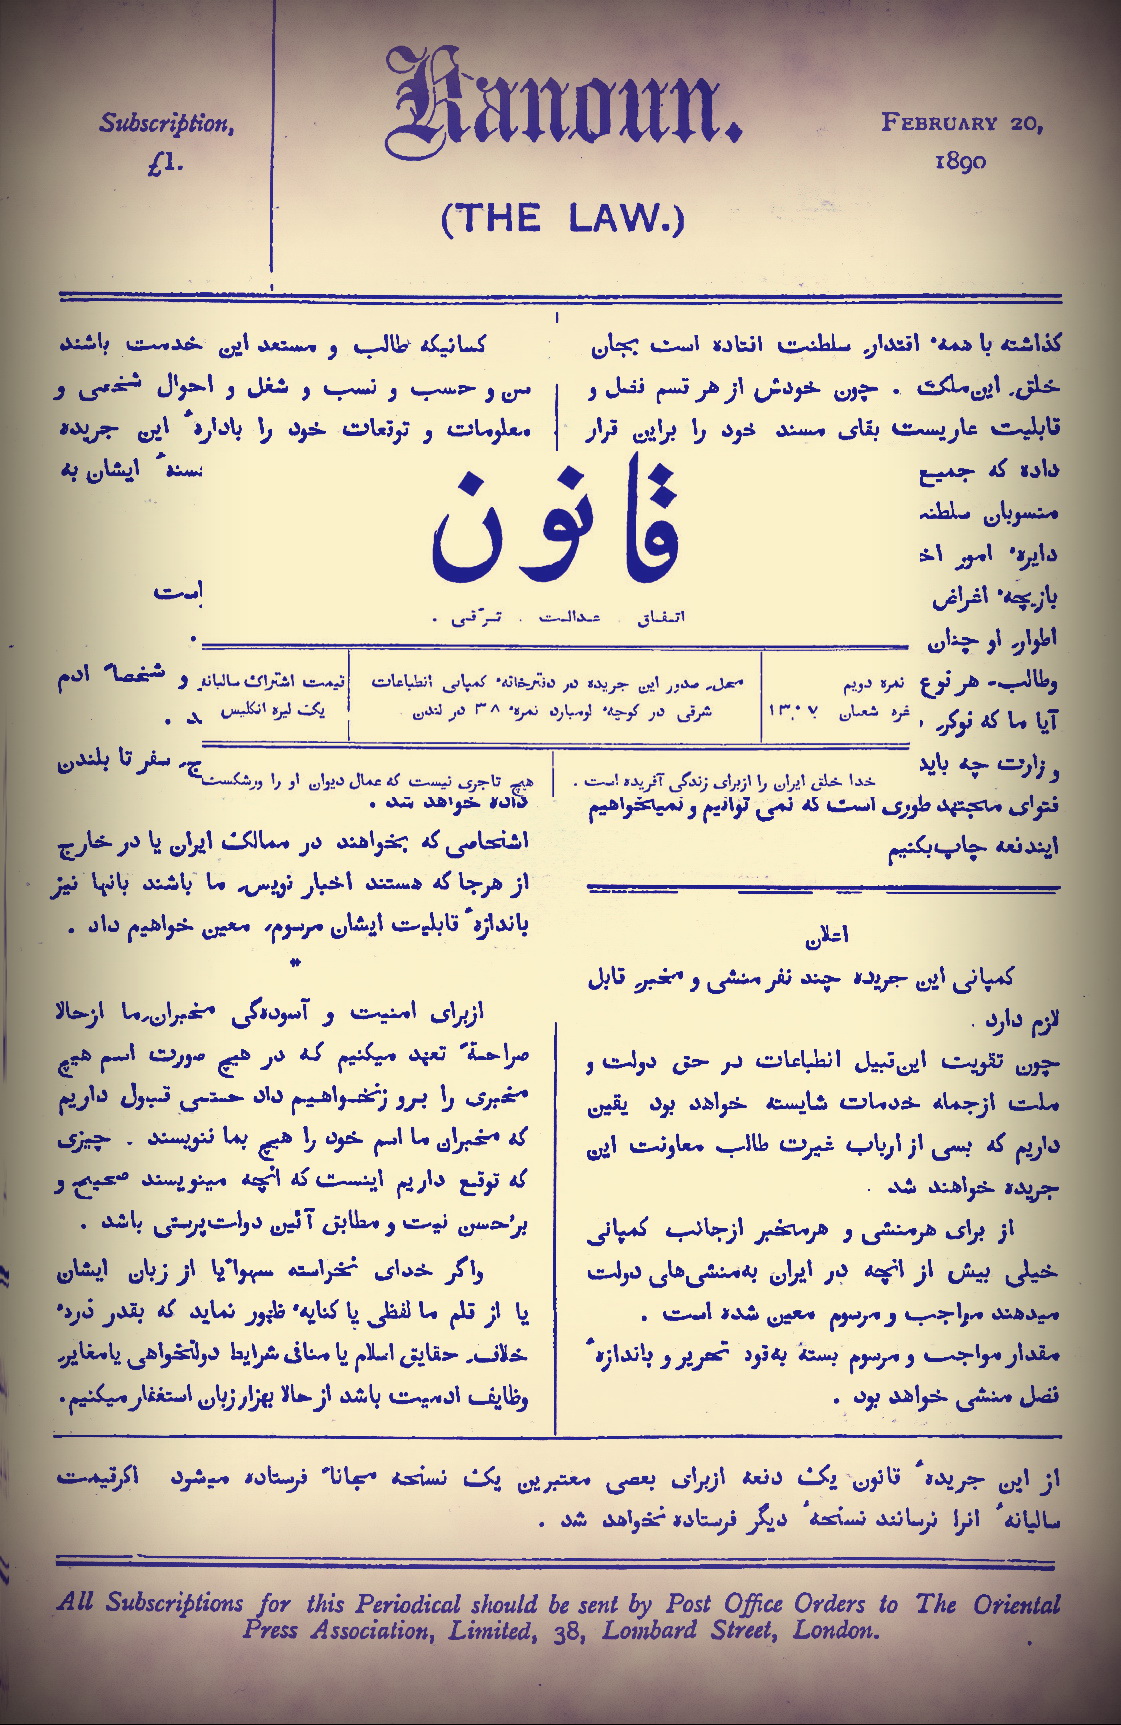 Subscription,
£1.
Kanoun.
(THE LAW.)
FEBRUARY 20,
1890
گذاشته با همهٔ اقتدار سلطنت افتاده است بجان
خلق این ملک . چون خودش از هر قسم فضل و
قابلیت عاریست بقای مسند خود را براین قرار
داده که جمیع
منسوبان
دایرهٔ امور
بازیچهٔ اغراض
اطوار او چنان
وطالب هر نوع
آیا ما که نوکر
وزارت چه باید
فتوای مجتهد طوری است که نمی توانیم و نمیخواهیم
ایندفعه چاپ بکنیم
اعلان
کمپانی این جریده چند نفر منشی و مخبر قابل
لازم دارد .
چون تقویت این قبیل انطباعات در حق دولت و
ملت ازجمله خدمات شایسته خواهد بود یقین
داریم که بسی از ارباب غیرت طالب معاونت این
جریده خواهند شد .
از برای هرمنشی و هرمخبر ازجانب کمپانی
خیلی بیش از آنچه در ایران به‌منشی‌های دولت
میدهند مواجب و مرسوم معین شده است .
مقدار مواجب و مرسوم بسته به‌قوت تحریر و باندازهٔ
فضل منشی خواهد بود .
کسانیکه طالب و مستعد این خدمت باشند
سن و حسب و نسب و شغل و احوال شخصی و
معلومات و توقعات خود را بادارهٔ این جریده
ایشان به
است
و شخصاً ادم
سفر تا بلندن
داده خواهد شد .
اشخاصی که بخواهند در ممالک ایران یا در خارج
از هرجا که هستند اخبار نویس ما باشند بانها نیز
باندازهٔ قابلیت ایشان مرسوم معین خواهیم داد .
*
ازبرای امنیت و آسودگی مخبران ما ازحالا
صراحةً تعهد میکنیم که در هیچ صورت اسم هیچ
مخبری را بروز نخواهیم داد حتی قبول داریم
که مخبران ما اسم خود را هیچ بما ننویسند . چیزی
که توقع داریم اینست که آنچه مینویسند صحیح و
برحسن نیت و مطابق آئین دولت‌پرستی باشد .
واگر خدای نخواسته سهواً یا از زبان ایشان
یا از قلم ما لفظی یا کنایهٔ ظهور نماید که بقدر ذرهٔ
خلاف حقایق اسلام یا منافی شرایط دولتخواهی یا مغایر
وظایف ادمیت باشد از حالا بهزار زبان استغفار میکنیم.
قانون
اتفاق . عدالت . ترقی .
نمره دویم
غره شعبان ۱۳۰۷
محل صدور این جریده در دفترخانهٔ کمپانی انطباعات
شرقی در کوچهٔ لومبارد نمرهٔ ۳۸ در لندن
قیمت اشتراک سالیانه
یک لیره انگلیس
خدا خلق ایران را ازبرای زندگی آفریده است .
هیچ تاجری نیست که عمال دیوان او را ورشکست
از این جریدهٔ قانون یک دفعه ازبرای بعضی معتبرین یک نسخه مجاناً فرستاده میشود اگر قیمت
سالیانهٔ انرا نرسانند نسخهٔ دیگر فرستاده نخواهد شد .
All Subscriptions for this Periodical should be sent by Post Office Orders to The Oriental
Press Association, Limited, 38, Lombard Street, London.